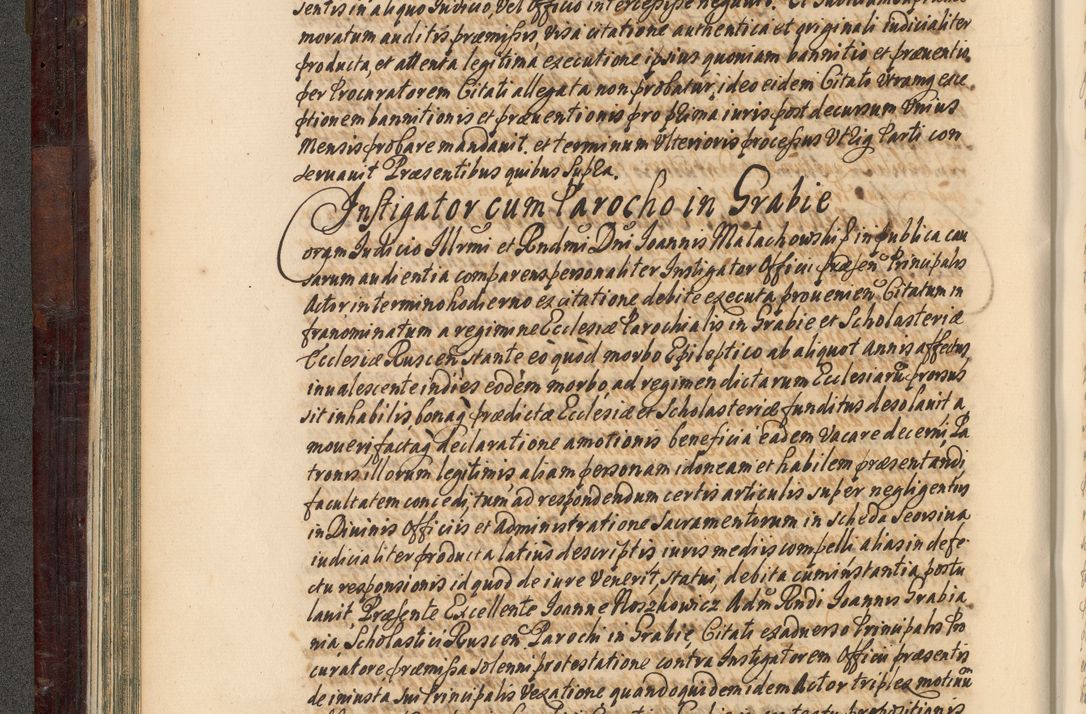 sentis in aliquo Iudicio, vel Officio intercessisse negavit.
moratum auditis præmissis, visa citatione authentica et originali iudicialiter
producta, et attenta legitima executione ipsius quoniam bannitio et præventio
per Procuratorem Citati allegata non probatur, ideo eidem Citato utramq̃ exce
ptionem bannitionis et præventionis pro p̃xima iuris post decursum unius
Mensis probare mandavit. et terminum ulterioris processus utriq̃ Parti con
servavit Præsentibus quibus supra.
Instigator cum Parocho in Grabie
Coram Iudicio Illrmi et Rndmi Dni Ioannis Małachowski in publica cau
sarum audientia comparens personaliter Instigator Officii præsen Principalis
Actor in termino hodierno ex citatione debite executa provenien Citatum in
franominatum a regimine Ecclesiæ Parochialis in Grabie et Scholasteriæ
Ecclesiæ Ruscen stante eo quod morbo Epileptico ab aliquot Annis affectus
invalescente indies eodem morbo ad regimen dictarum Ecclesiarũ prorsus
sit inhabilis bonaq̃ prædictæ Ecclesiæ et Scholasteriæ funditus desolavit a
moveri factaq̃ declaratione amotionis beneficia eadem vacare decerni, Pa
tronis illorum legitimis aliam personam idoneam et habilem præsentandi
facultatem concedi, tum ad respondendum certis articulis super negligentiis
in Divinis Officiis et Administratione Sacramentorum in scheda seorsiva
iudicialiter producta latius descriptis iuris mediis compelli alias in defe
ctu responsionis id quod de iure venerit, statui, debita cum instantia postu
lavit. Præsente Excellente Ioanne Roszkowicz Adm Rndi Ioannis Grabia
nia Scholastici Ruscen Parochi in Grabie, Citati ex adverso Principalis Pro
curatore præmissa solenni protestatione contra Instigatorem Officii præsentis
de iniusta sui Principalis Vexatione quandoquidem idem Actor triplex motivũ